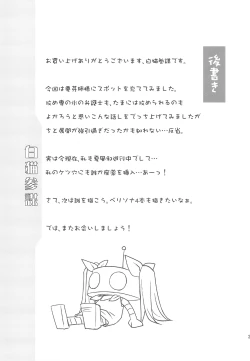 後書き
お買い上げありがとうございます、白猫参謀です。
今回は夏芽姉様にスポットを充ててみました。
攻め専の小の弁護士も、たまには攻められるのも
よかろうと思いこんな話しをでっち上げてみましたが
ちと展開が強引過ぎだったかも知れない…反省。
実は今現在、私も夏風邪進行中でして…
私のケツ穴にも誰か座薬を挿入…あーっ！
さて、次は誰を描こう、ペリソナ4本も描きたいなぁ。
では、またお会いしましょう！
白猫参謀